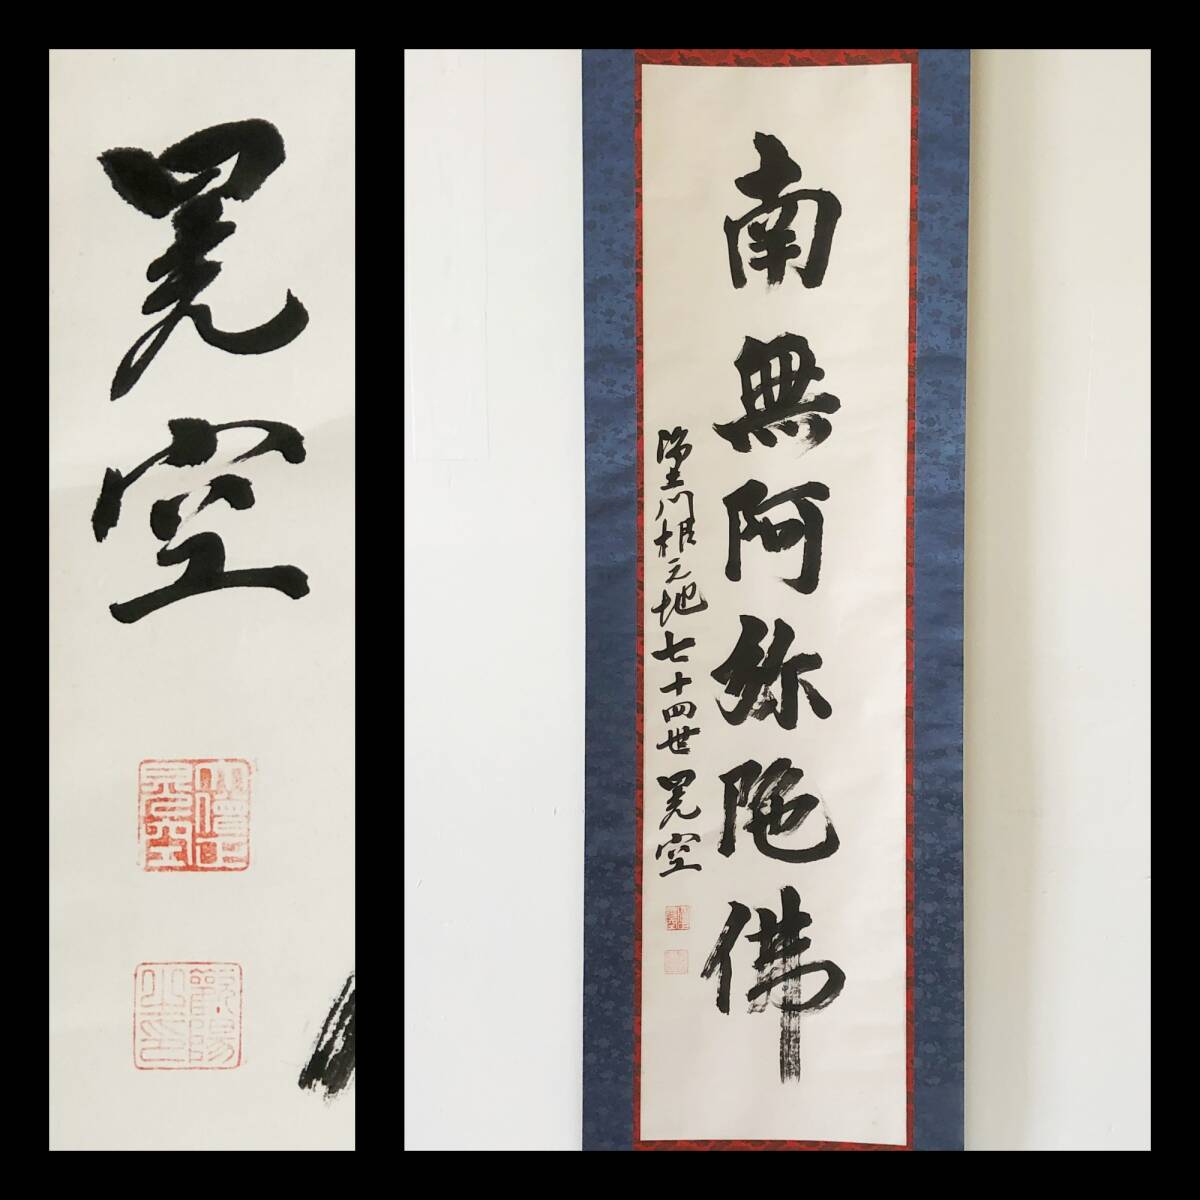 晃空
大僧正
晃空
南無阿弥陀佛
浄土門根元地七十四世晃空